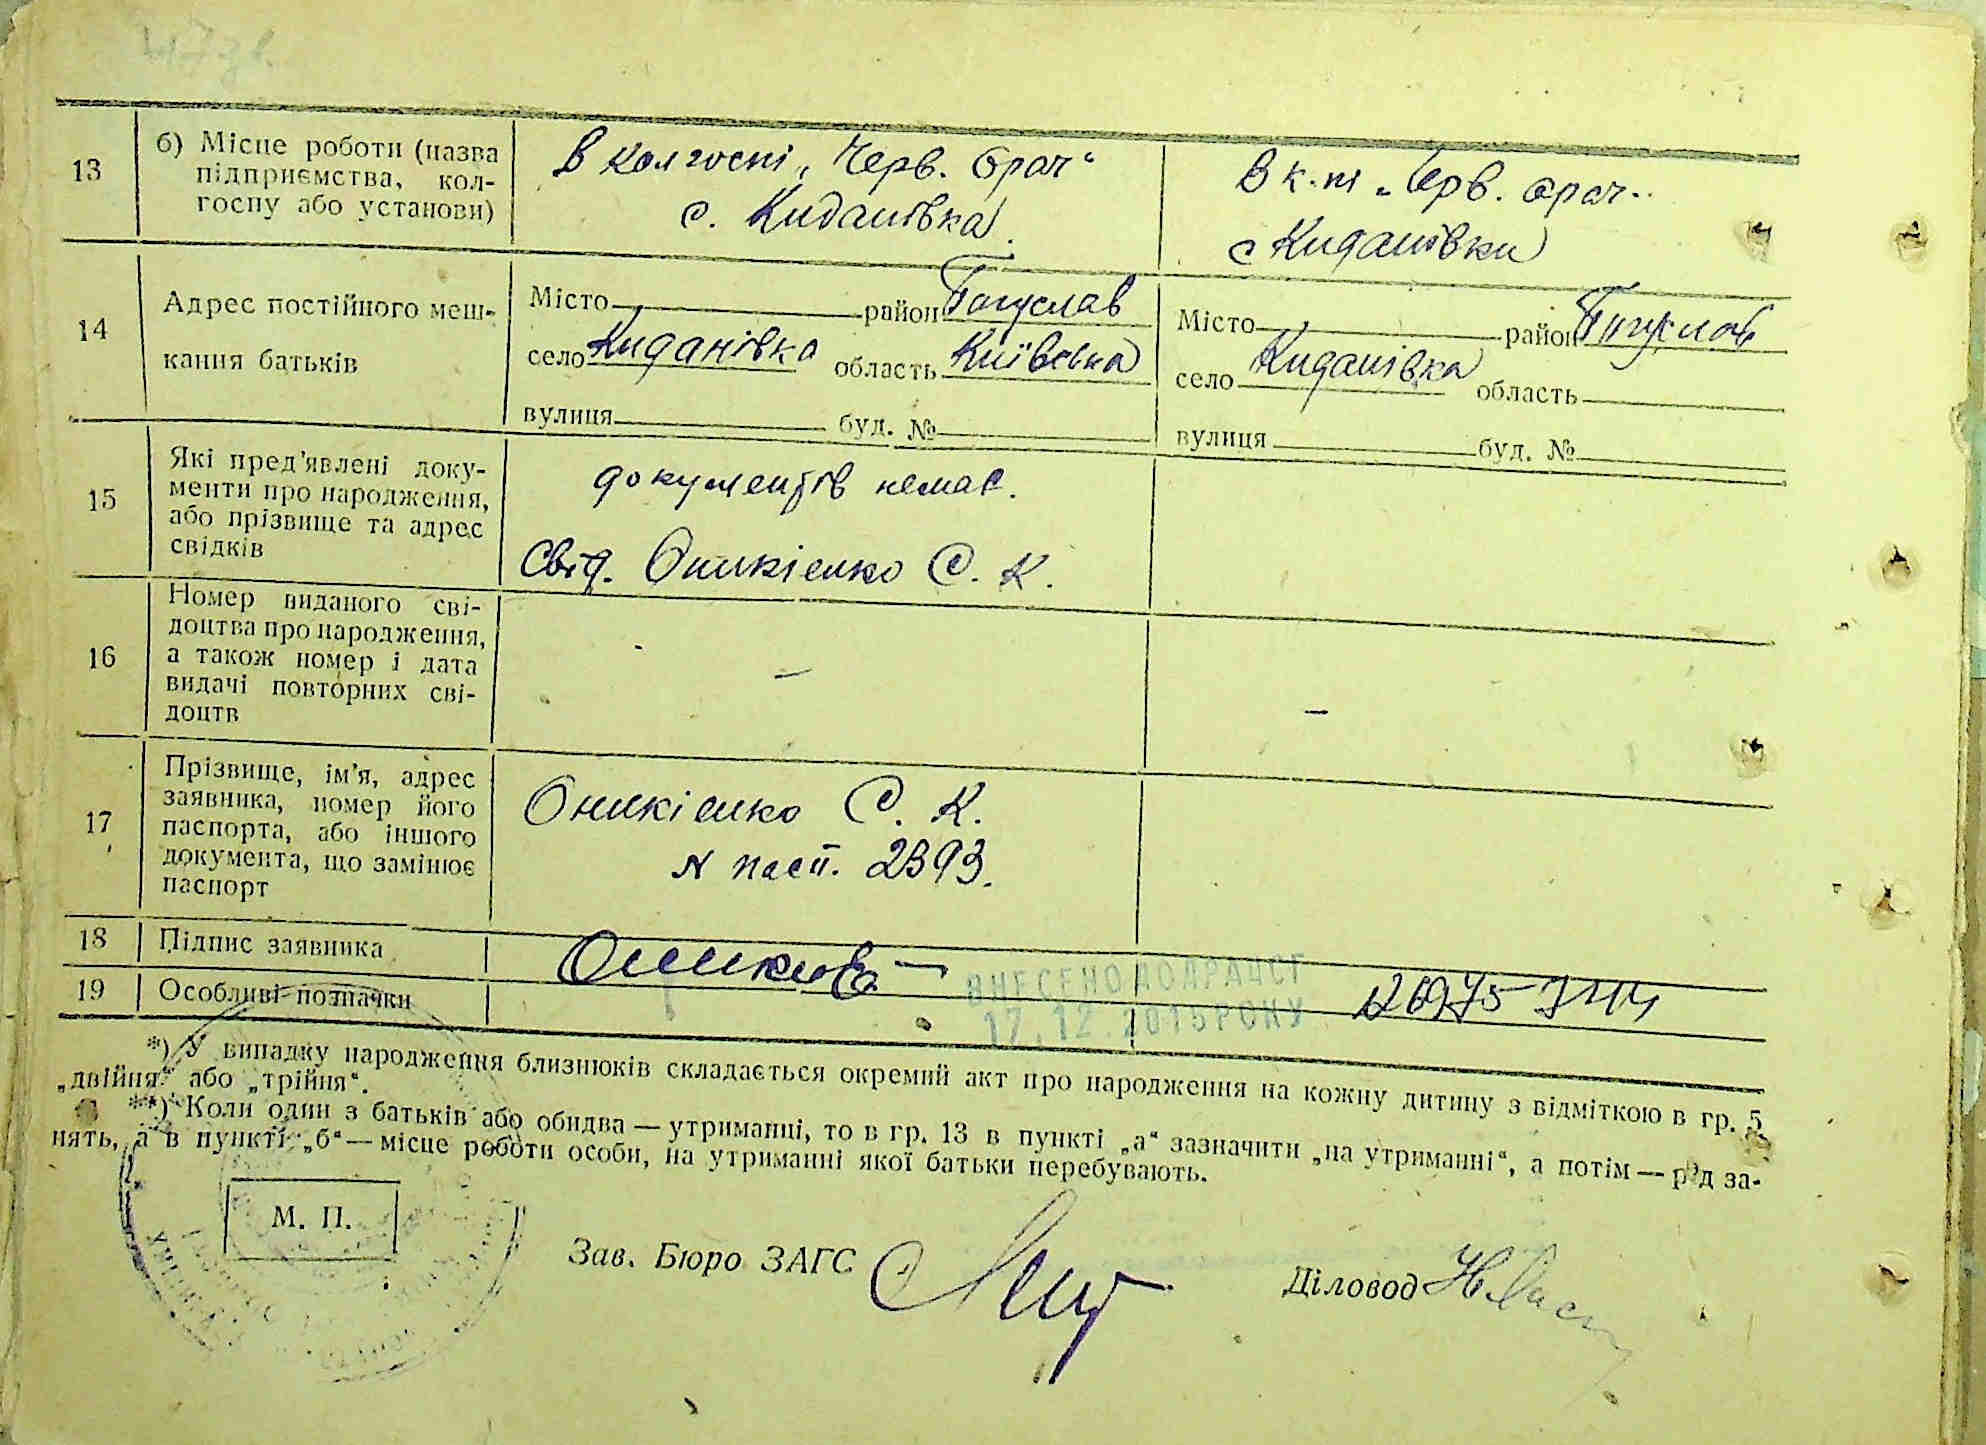 13
б) Місце роботи (назва
підприємства, кол-
госпу або установи)
В колгоспі „Черв. Орач“
с. Киданівка
В к.пі „Черв. орач“
с Киданівки
14
Адрес постійного меш-
кання батьків
Місто район Богуслав
село Киданівка область Київська
вулиця буд. №
Місто район Богуслав
село Киданівка область
вулиця буд. №
15
Які пред'явлені доку-
менти про народження,
або прізвище та адрес
свідків
документів немає.
Свід. Оникієнко С. К.
16
Номер виданого сві-
доцтва про народження,
а також номер і дата
видачі повторних сві-
доцтв
–
–
17
Прізвище, ім'я, адрес
заявника, номер його
паспорта, або іншого
документа, що замінює
паспорт
Оникієнко С. К.
N пасп. 2393.
18
Підпис заявника
19
Особливі позначки
ВНЕСЕНО ДО ДРАЦСГ
17.12.2015 РОКУ
*) У випадку народження близнюків складається окремий акт про народження на кожну дитину з відміткою в гр. 5
„двійня“ або „трійня“.
**) Коли один з батьків або обидва — утриманці, то в гр. 13 в пункті „а“ зазначити „на утриманні“, а потім — рід за-
нять, а в пункті „б“ — місце роботи особи, на утриманні якої батьки перебувають.
М. П.
Зав. Бюро ЗАГС
Діловод